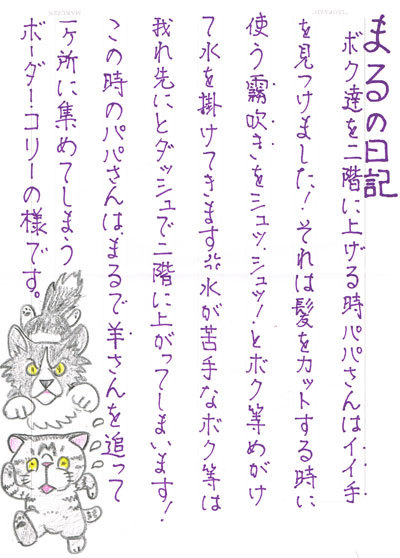 まるの日記
ボク達を二階に上げる時パパさんはイイ手
を見つけました！それは髪をカットする時に
使う霧吹きをシュッ・シュッ！とボク等めがけ
て水を掛けてきます💦水が苦手なボク等は
我れ先にとダッシュで二階に上がってしまいます！
この時のパパさんは、まるで羊さんを追って
一ヶ所に集めてしまう
ボーダー・コリーの様です。